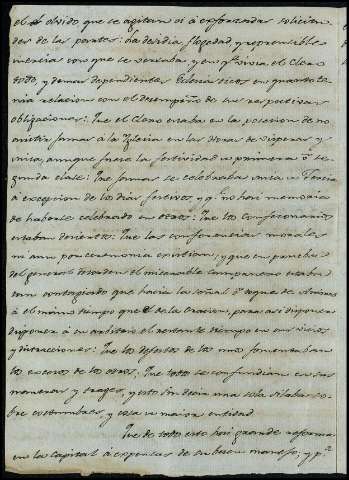 el olvido que se agitaren ni á esforzadas solicitu-
des de las partes: la desidia, flogedad, y reprensible
inercia con que se versaba, y en qᵉ vivia el Clero
todo, y demas dependientes Eclesiasticos en quanto te-
nia relacion con el desempeño de sus respectivas
obligaciones: Que el Clero estaba en la posesion de no
asistir jamas á la Yglesia en las horas de visperas y
misa, aunque fuese la festividad de primera ó se-
gunda clase: Que jamas se celebraba misa de Tercia
á excepcion de los dias festivos, y qᵉ no hai memoria
de haberse celebrado en otros: Que los Confesonarios
estaban desiertos: Que las conferencias morales
ni aun por ceremonia existian; y que en prueba
del general desorden el miserable Campanero estaba
tan contagiado que hacia la señal ó toque de Animas
á el mismo tiempo que el de la Oracion, para asi disponer
disponer á su arbitrio el restante tiempo en sus vicios
y distracciones: Que los defectos de los unos fomentaban
los excesos de los otros: Que todos se confundian en sus
maneras y trages, y esto sin decir una sola silaba so-
bre costumbres, y cosas de maior entidad.
Que de todo esto hai grande reforma
en la capital á expensas de su buen manejo, y pʳ